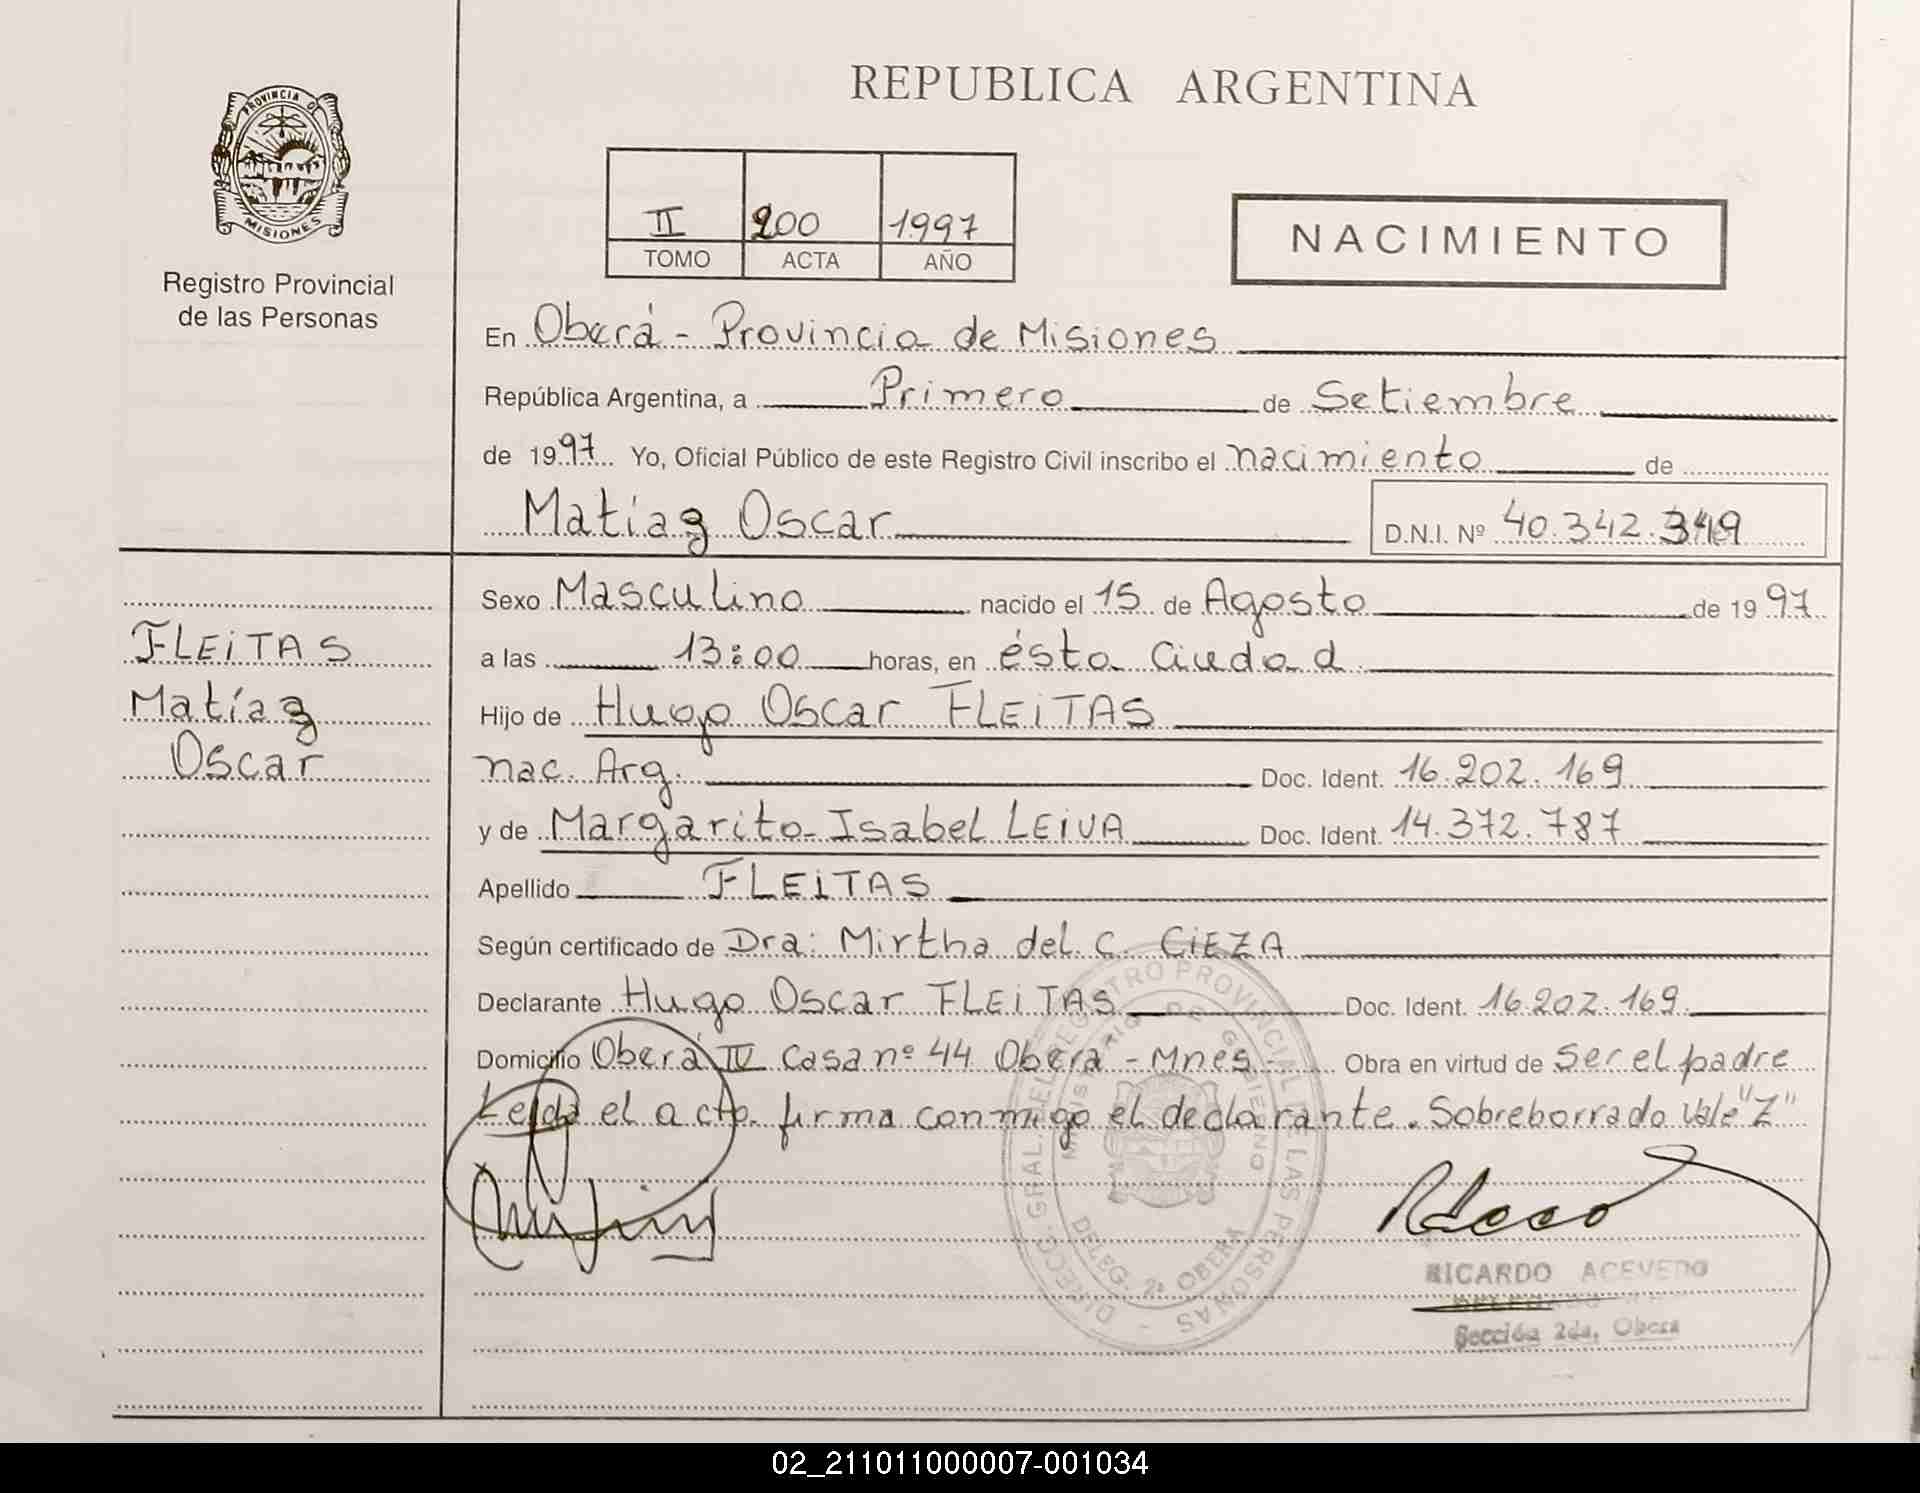 REPUBLICA ARGENTINA
PROVINCIA DE
MISIONES
Registro Provincial
de las Personas
II 200 1997
TOMO ACTA AÑO
NACIMIENTO
En Oberá - Provincia de Misiones
República Argentina, a Primero de Setiembre
de 1997 Yo, Oficial Público de este Registro Civil inscribo el nacimiento de
Matíaz Oscar D.N.I. Nº 40.342.349
Sexo Masculino nacido el 15 de Agosto de 1997
FLEiTAS
a las 13:00 horas, en ésta Ciudad
Matíaz
Hijo de Hugo Oscar FLEiTAS
Oscar
nac. Arg. Doc. Ident. 16.202.169
y de Margarita Isabel LEiVA Doc. Ident. 14.372.787
Apellido FLEiTAS
Según certificado de Dra: Mirtha del C. CiEZA
Declarante Hugo Oscar FLEiTAS Doc. Ident. 16.202.169
Domicilio Oberá IV Casa nº 44 Oberá - Mnes - Obra en virtud de Ser el padre
Leída el acta firma conmigo el declarante. Sobreborrado Vale "Z"
DIRECC. GRAL. DEL REGISTRO PROVINCIAL DE LAS PERSONAS -
MINISTERIO DE GOBIERNO
DELEG. 2ª OBERA
RICARDO ACEVEDO
Sección 2da. Obera
02_211011000007-001034